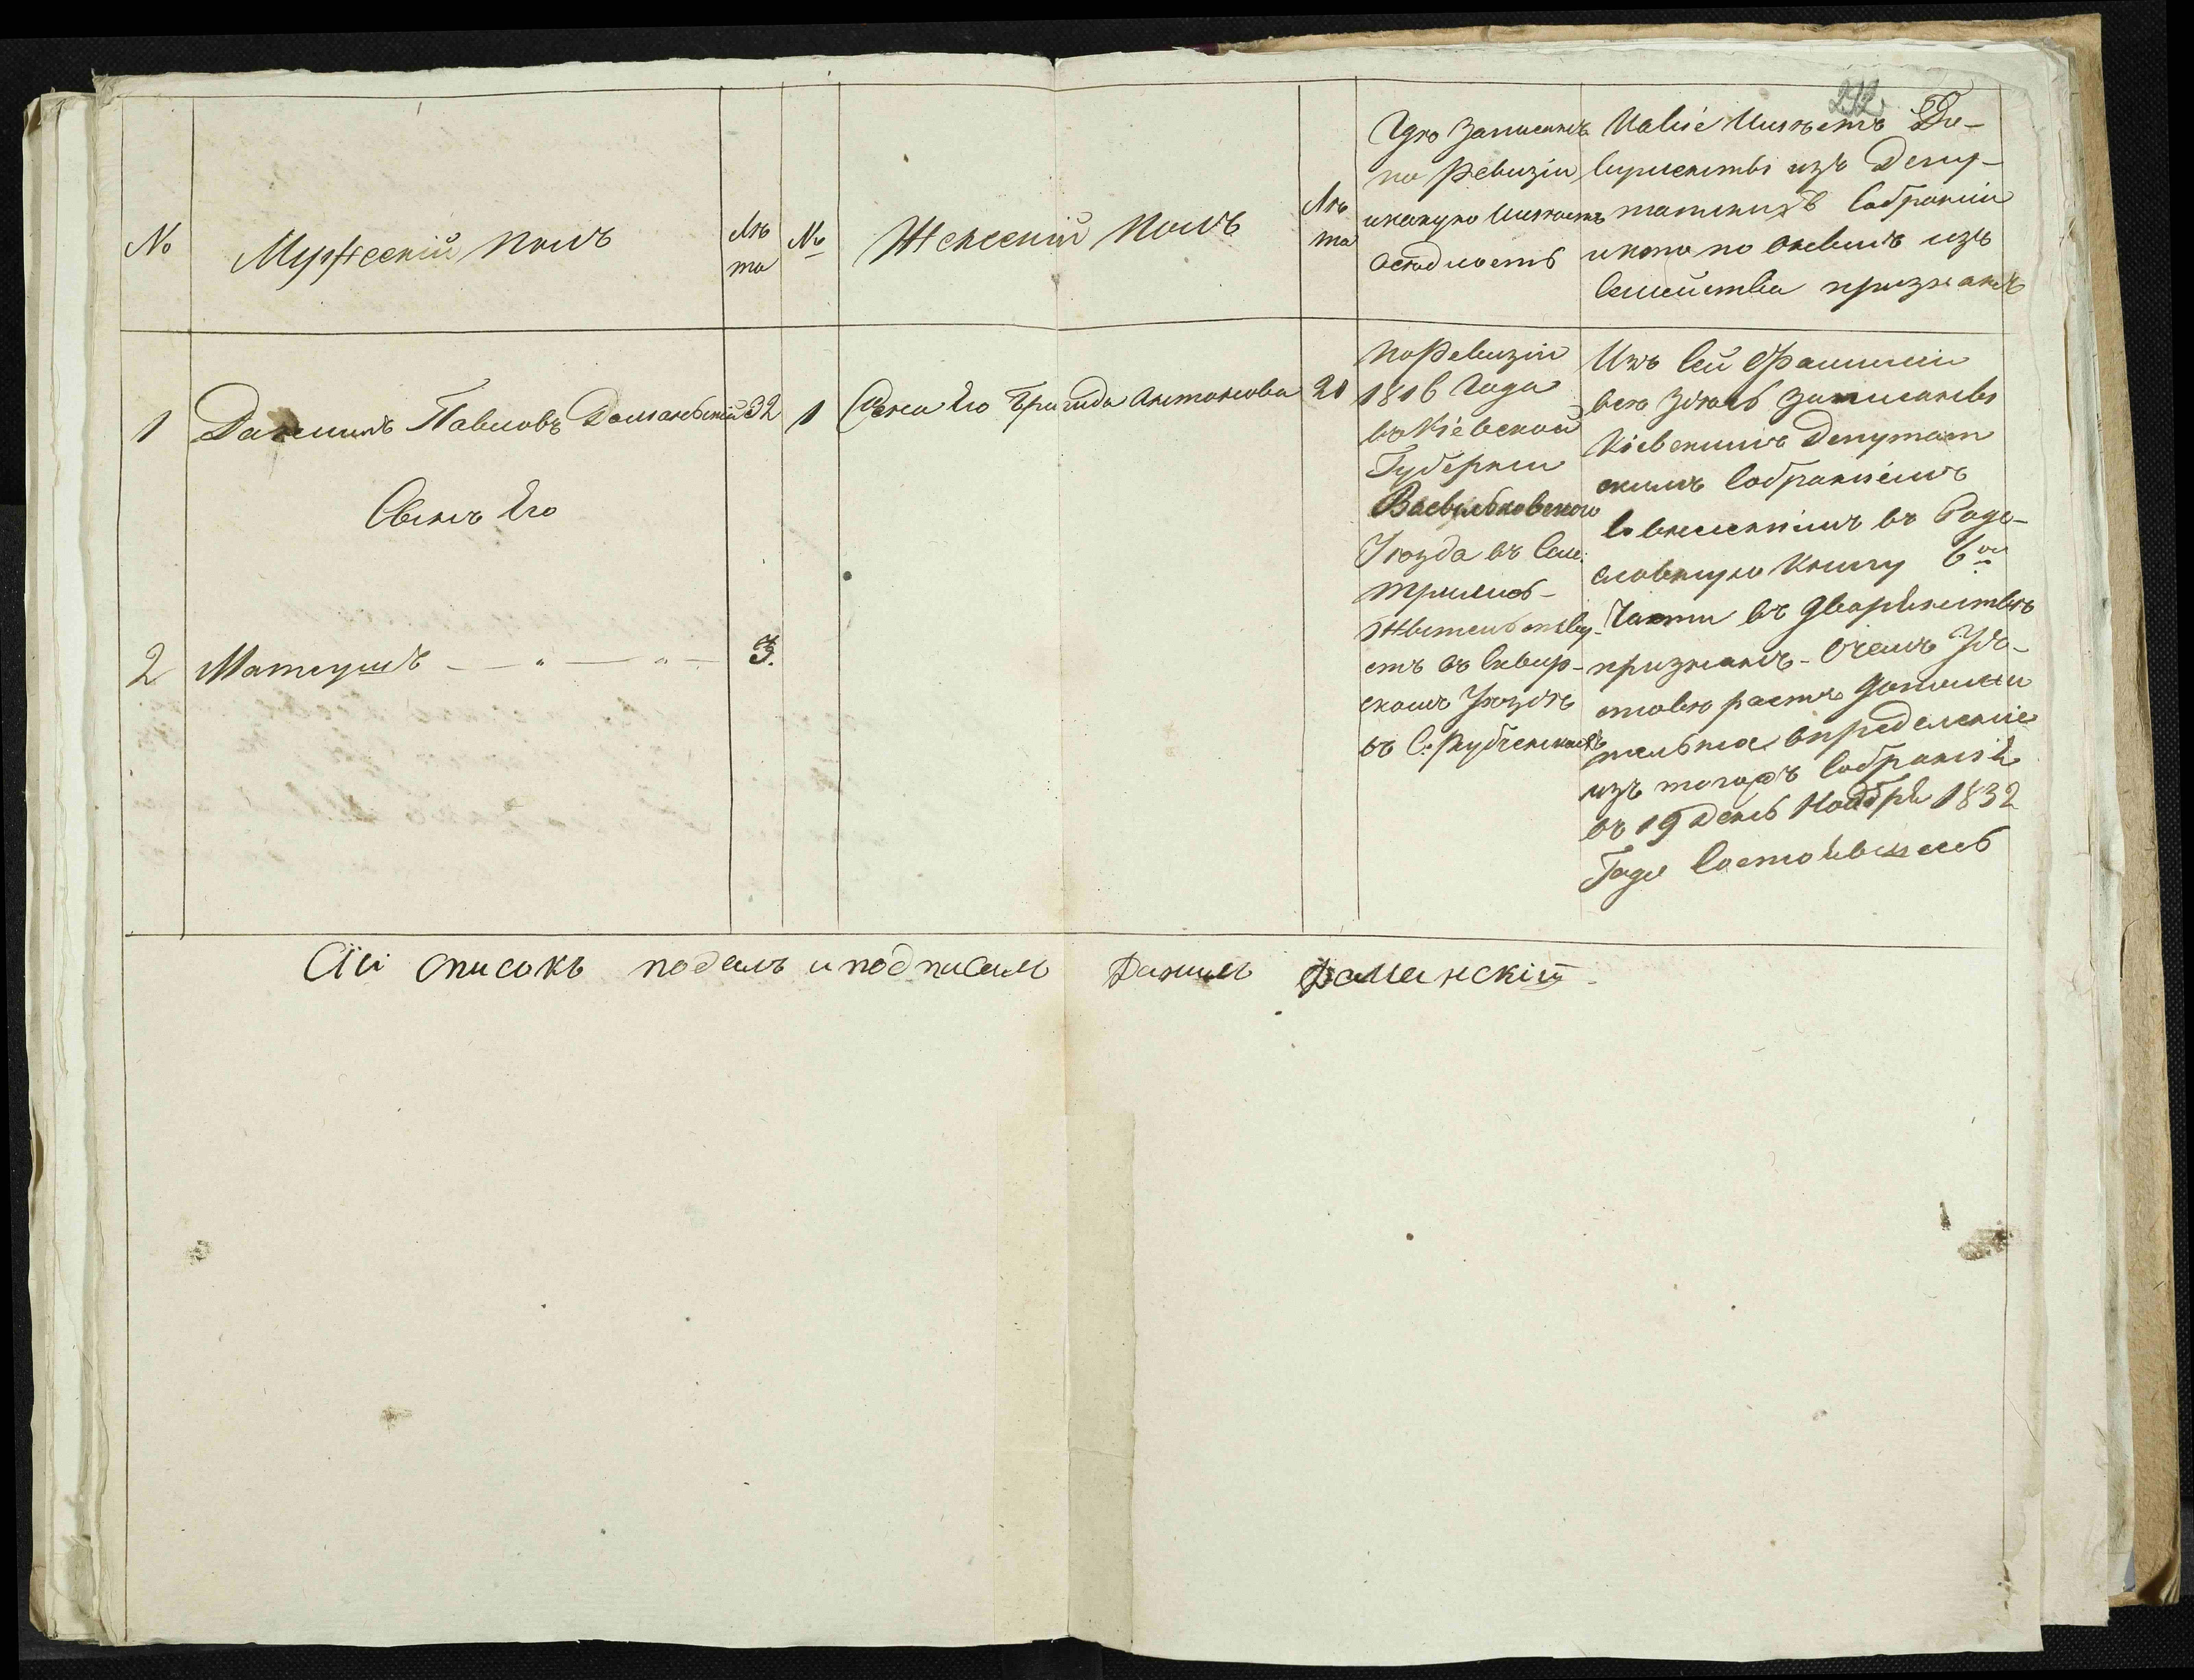 212
№
Мужескій полъ
Лѣ
та
№
Женскій полъ
Лѣ
та
Гдѣ записанъ
по Ревизіи
и какую имѣетъ
осѣдлость
Какіе имѣетъ До-
кументы изъ Депу-
татскихъ Собраній
и кто по онымъ изъ
семейства признанъ
1
Данилъ Павловъ Доманскій
32
1
Жена его Бригида Антонова
21
Сынъ Его
2
Матеушъ — „ — „ —
3.
По Ревизіи
1816 Года
въ Кіевской
Губерніи
Васильковского
Уѣзда въ Сел:
Трилис-
Жительству-
етъ въ Сквир-
скомъ Уѣздѣ
въ С:
Изъ сей Фамиліи
всѣ здѣсь записаны
Кіевскимъ Депутат
скимъ Собраніемъ
со внесеніемъ въ Родо-
словную Книгу 6ой
Части въ дворянствѣ
признанъ- о чемъ Удо-
стовѣряетъ дополни
тельное опредѣленіе
изъ тогожъ Собранія
въ 19 день Ноября 1832
Года Состоявшеесь
Сій списокъ подалъ и подписалъ Данилъ Доманскій